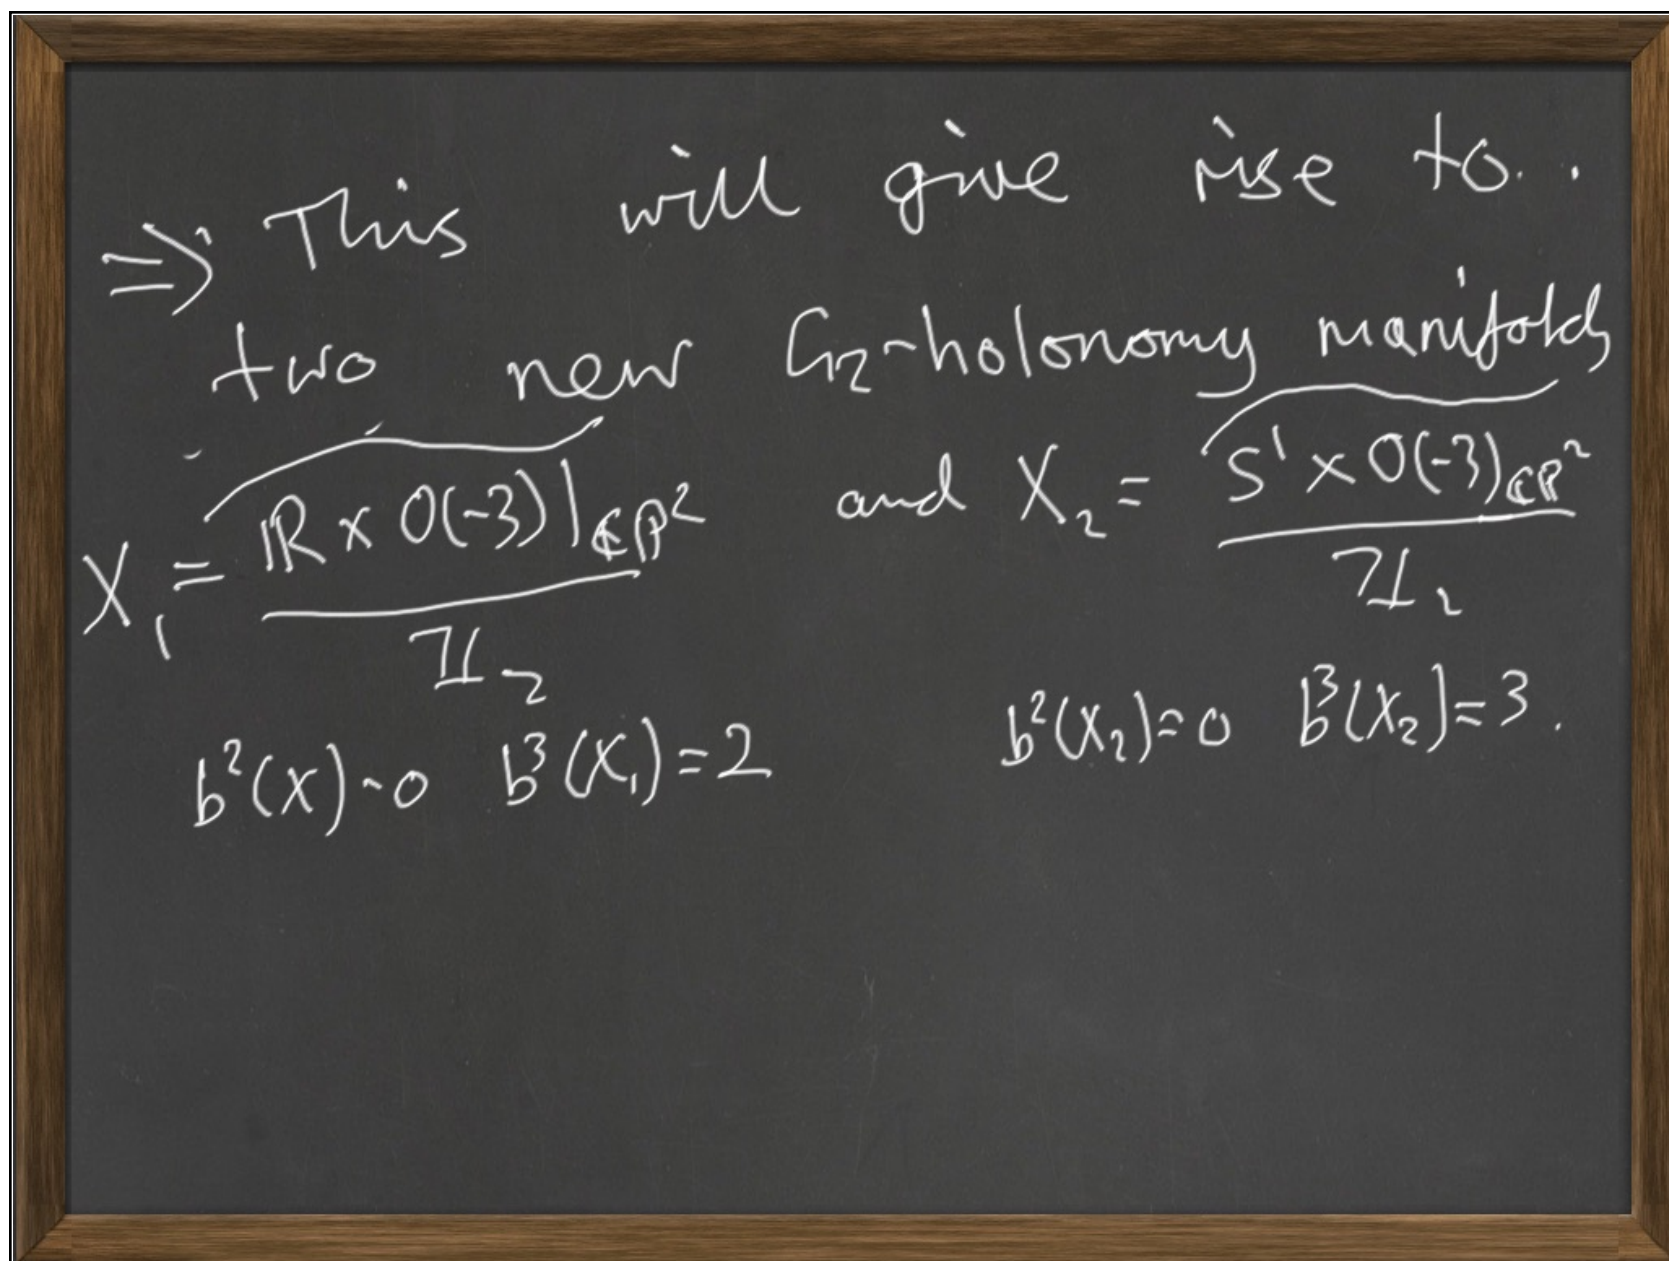 ⇒ This will give rise to..
two new G₂-holonomy manifolds
X₁ = \widetilde{ℝ × O(-3)|_{ℂℙ²} / ℤ₂} and X₂ = \widetilde{S¹ × O(-3)_{ℂℙ²} / ℤ₂}
b²(X) - 0 b³(X₁) = 2 b²(X₂) = 0 b³(X₂) = 3.